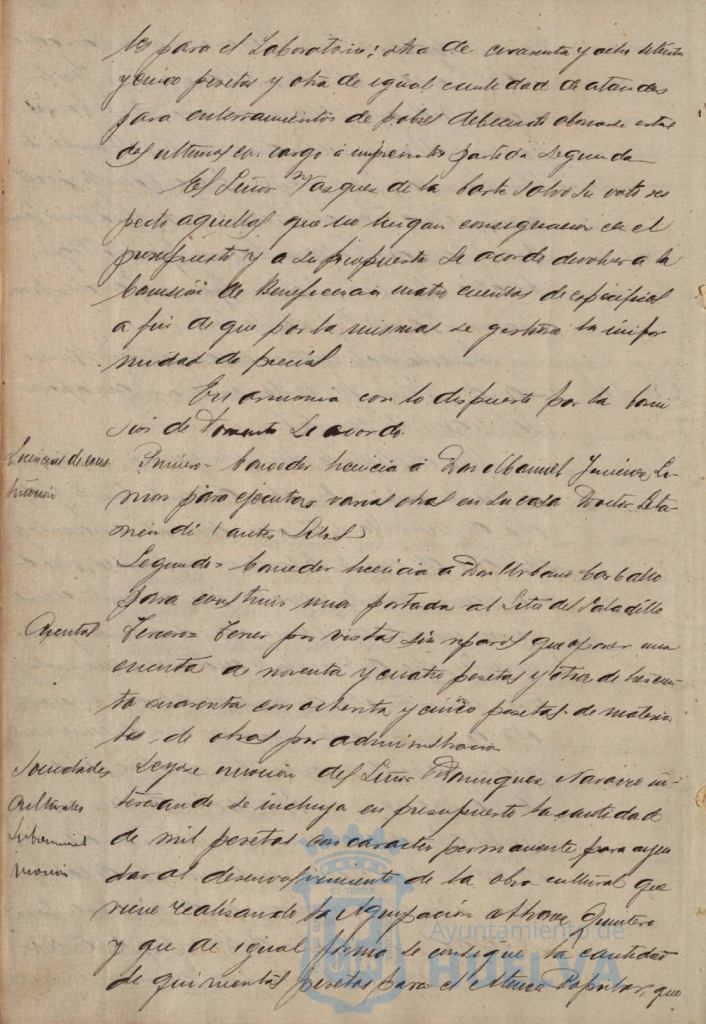 les para el Laboratorio; otra de cuarenta y ocho setenta
y cinco pesetas y otra de igual cantidad de ataudes
para enterramientos de pobres debiendo abonarse estas
dos ultimas con cargo á imprevistos partida segunda
El Señor Vazquez de la Corte salvó su voto res
pecto aquellas que no tengan consignacion en el
presupuesto y a su propuesta se acordó devolver a la
Comisión de Beneficencia cuatro cuentas de especificos
a fin de que por la misma se gestione la unifor
midad de precios
En armonia con lo dispuesto por la Comi
sion de Fomento se acordó.
Licencias de cons
trucción
Primero= Conceder licencia á Don Manuel Jimenez Li-
mon para ejecutar varias obras en su casa Doctor Leta-
mendi (antes Silos)
Segundo= Conceder licencia a Don Urbano Carballo
para construir una portada al Sitio del Saladillo
Cuentas
Tercero= Tener por vistas sin reparos que oponer una
cuenta de noventa y cuatro pesetas y otra de trescien-
ta cuarenta con ochenta y cinco pesetas de materia
les de obras por administración.
Sociedades
Culturales
Subvenciones
moción
Leyose moción del Señor Dominguez Navarro in-
teresando se incluya en presupuesto la cantidad
de mil pesetas con caracter permanente para ayu
dar al desenvolvimiento de la obra cultural que
viene realizando la Agrupación Alvarez Quintero
y que de igual forma se consigne la cantidad
de quinientas pesetas para el Ateneo Popular, que
Ayuntamiento de
HUELVA